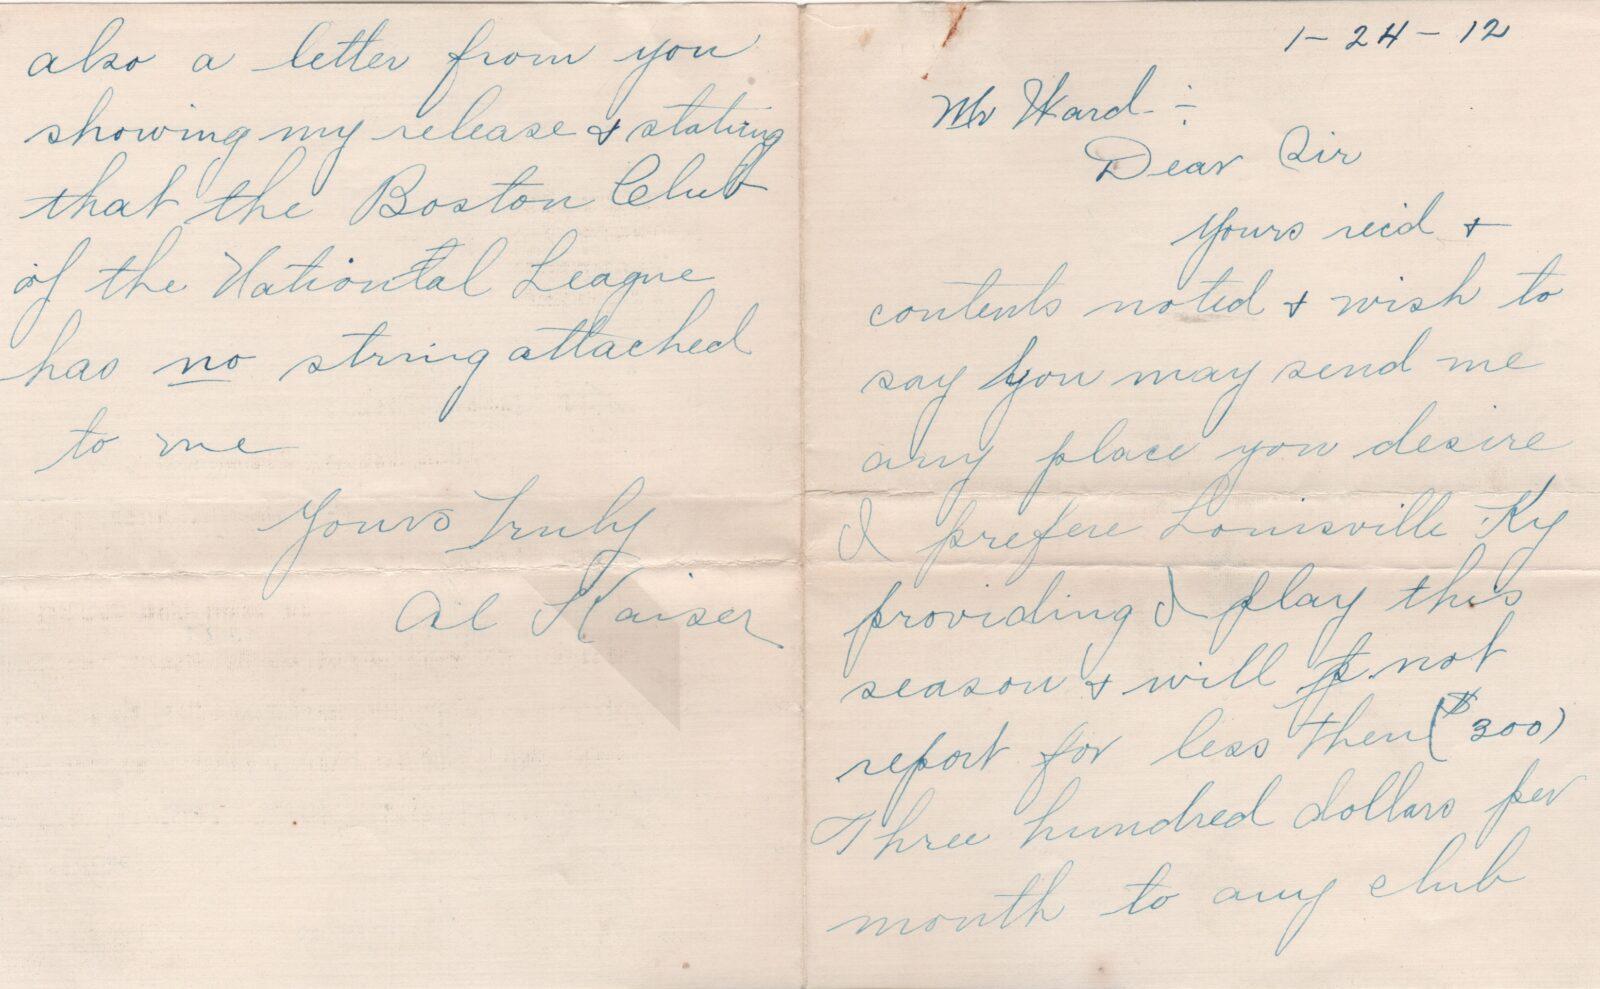 1-24-12
Mr Ward÷
Dear Sir
Yours rec'd +
contents noted + wish to
say you may send me
any place you desire
I prefere Louisville Ky
providing I play this
season + will not
report for less then ($300)
Three hundred dollars per
month to any club
also a letter from you
showing my release + stating
that the Boston Club
of the National League
has no string attached
to me
Yours Truly
Al Kaiser